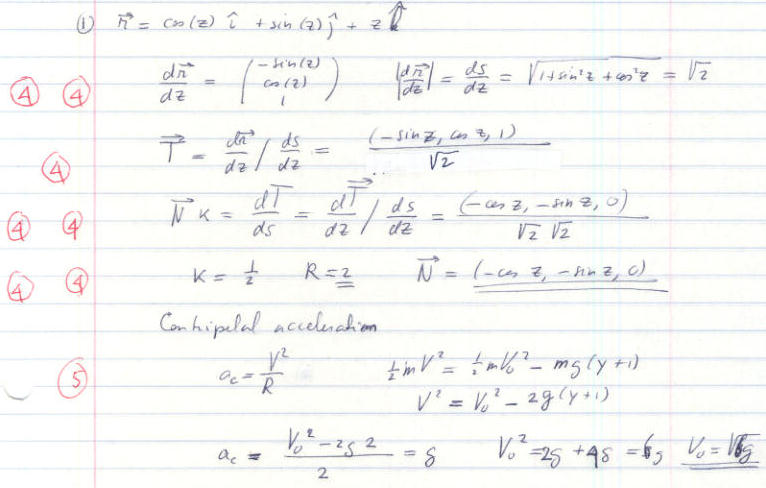 ① r⃗ = cos(z) î + sin(z) ĵ + z k̂
dr⃗/dz = (-sin(z), cos(z), 1) |dr⃗/dz| = ds/dz = √(1+sin²z + cos²z) = √2
④ ④
T⃗ = dr⃗/dz / ds/dz = (-sin z, cos z, 1) / √2
④
N⃗ κ = dT⃗/ds = dT⃗/dz / ds/dz = (-cos z, -sin z, 0) / √2 √2
④ ④
κ = 1/2 R = 2 N⃗ = (-cos z, -sin z, 0)
④ ④
Centripetal acceleration
a_c = V²/R ½mV² = ½mV₀² - mg(y+1)
⑤
V² = V₀² - 2g(y+1)
a_c = (V₀² - 2g2)/2 = g V₀² = 2g + 4g = 6g V₀ = √6g